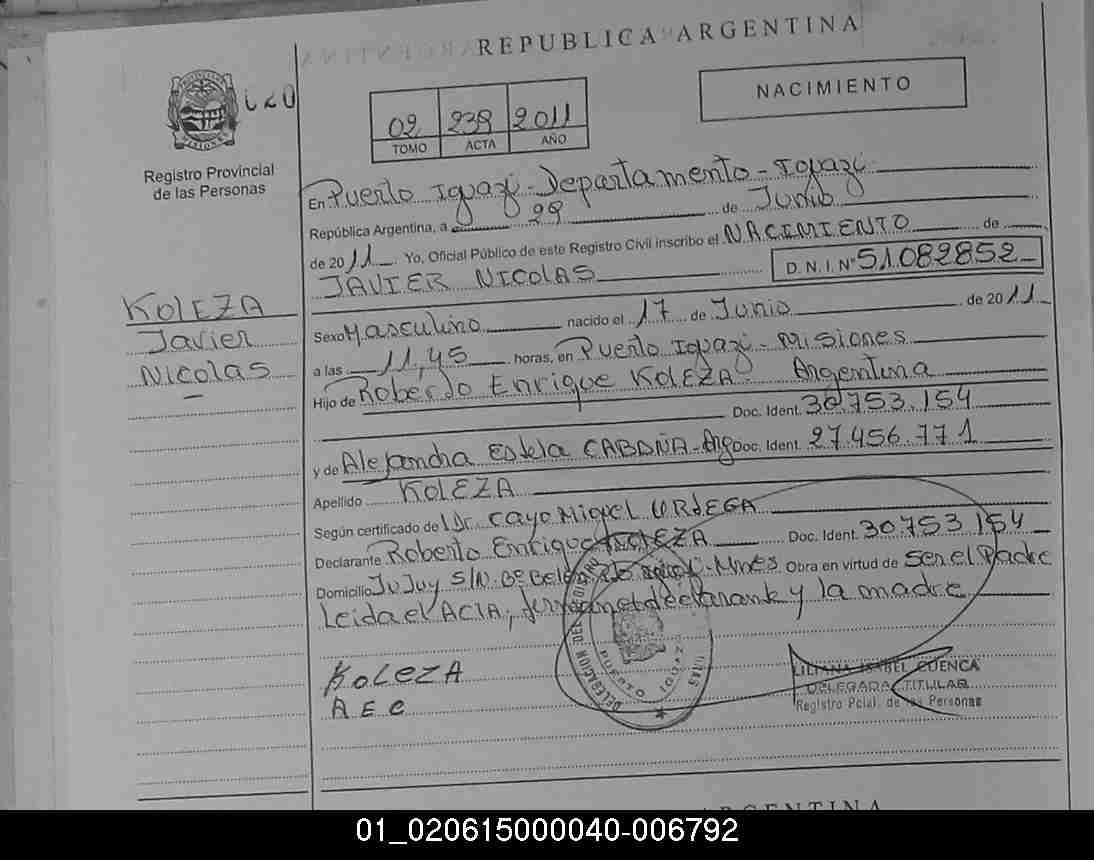 REPUBLICA ARGENTINA
020
02 239 2011
TOMO ACTA AÑO
NACIMIENTO
Registro Provincial
de las Personas
En Puerto Iguazú - Departamento - Iguazú
República Argentina, a 29 de Junio
de 2011. Yo, Oficial Público de este Registro Civil inscribo el NACIMIENTO de
JAVIER NICOLAS D.N.I. Nº 51.082.852
KOLEZA
Javier
Nicolas
Sexo Masculino nacido el 17 de Junio de 2011
a las 11,45 horas, en Puerto Iguazú - Misiones
Hijo de Roberto Enrique KOLEZA Argentina
Doc. Ident. 30753.154
y de Alejandra Estela CABAÑA - Arg Doc. Ident. 27.456.771
Apellido KOLEZA
Según certificado de Dr. Cayo Miguel URDEGA
Declarante Roberto Enrique KOLEZA Doc. Ident. 30753154
Domicilio JuJuy S/N Bº Mnes Obra en virtud de Ser el Padre
Leida el ACTA, declarante y la madre
KOLEZA
A E C
DELEGACION DEL
PUERTO IGUAZU
LILIANA ISABEL CUENCA
DELEGADA TITULAR
Registro Pcial. de las Personas
ARGENTINA
01_020615000040-006792